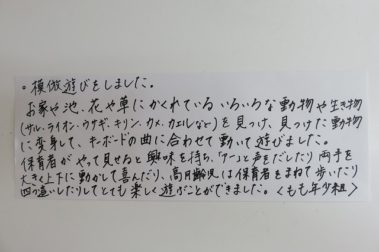 。模倣遊びをしました。
お家や池、花や草にかくれている いろいろな動物や生き物
(サル・ライオン・ウサギ、キリン、カメ、カエルなど)を見つけ、見つけた動物
に変身して、キーボードの曲に合わせて動いて遊びました。
保育者がやって見せると興味を持ち、「アーッ」と声をだしたり 両手を
大きく上下に動かして喜んだり、高月齢児は保育者をまねて歩いたり
四つ這いしたりしてとても楽しく遊ぶことができました。〈もも年少組〉